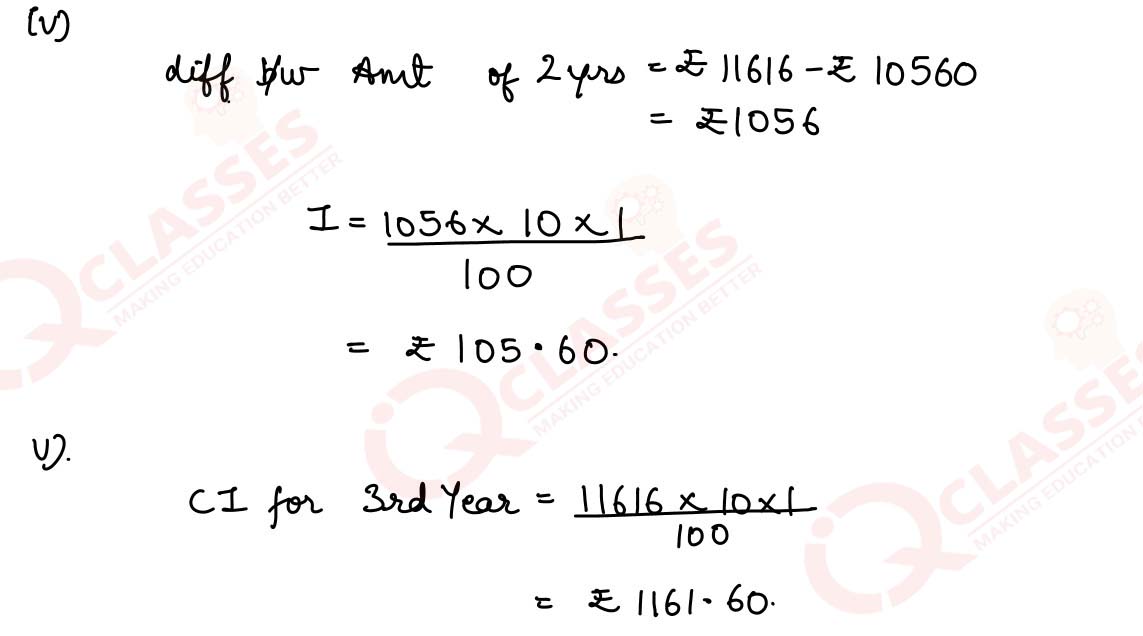 (v)
diff b/w Amt of 2 yrs = ₹ 11616 - ₹ 10560
= ₹1056
I = 1056 x 10 x 1
100
= ₹ 105.60.
v).
CI for 3rd Year = 11616 x 10 x 1
100
= ₹ 1161.60.
QCLASSES
MAKING EDUCATION BETTER
iQCLASSES
MAKING EDUCATION BETTER
iQCLASSES
MAKING EDUCATION